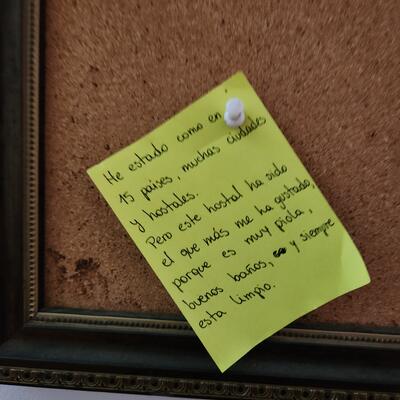 He estado como en
15 paises, muchas ciudades
y hostales.
Pero este hostal ha sido
el que más me ha gustado,
porque es muy piola,
buenos baños, y siempre
esta limpio.